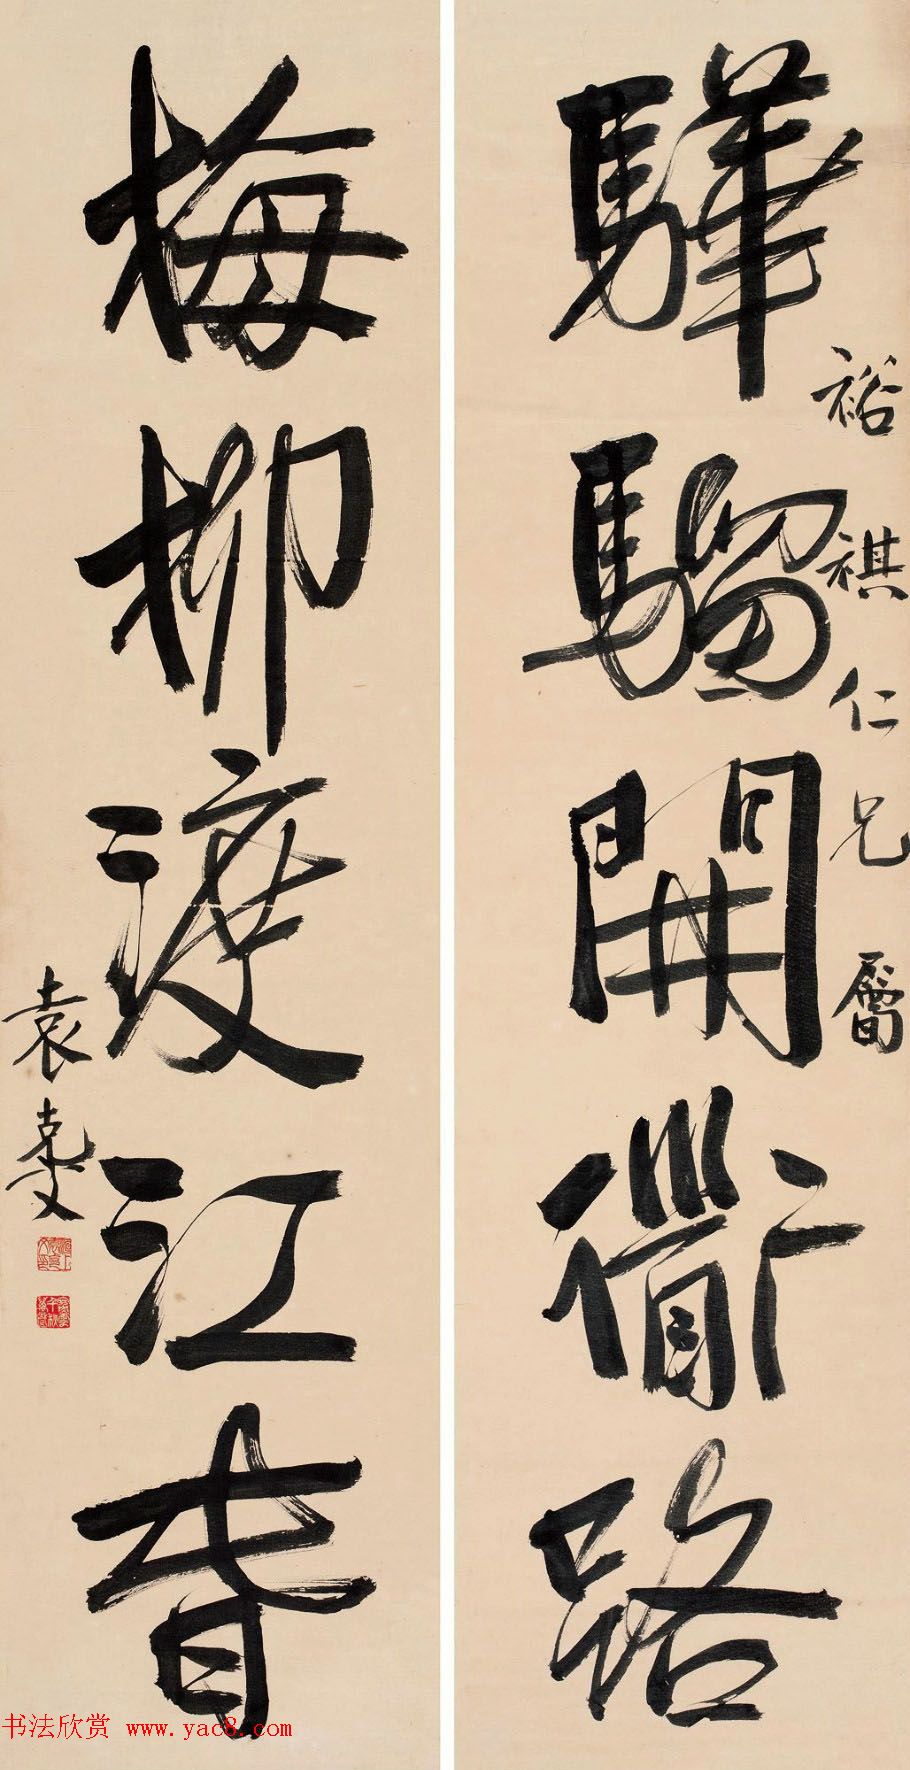 裕祺仁兄屬
驊騮開衜路
梅柳渡江春
袁克文
书法欣赏 www.yac8.com